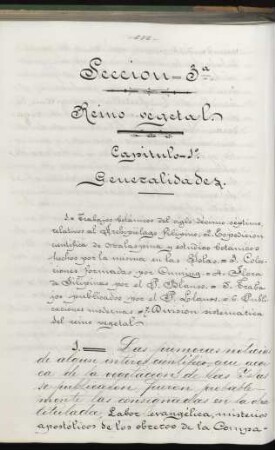 Seccion=3ª
Reino vegetal.
Capitulo=1º
Generalidades.
1= Trabajos botánicos del siglo decimo septimo,
relativos al Archipiélago Filipino, 2. Expedicion
cientifica de Malaspina y estudios botánicos
hechos por la misma en las Yslas. = 3. Colec-
ciones formadas por Cuming = 4. Flora
de Filipinas por el P. Blanco. = 5. Traba-
jos publicados por el P. Llanos = 6 Publi-
caciones modernas = 7. Division sistematica
del reino vegetal
1.= Las primeras noticias
de algun interés cientifico, que acer-
ca de la vegetacion de las Yslas
se publicaron fueron probable-
mente las consignadas en la obra
titulada, Labor evangélica, ministerios
apostolicos de los obreros de la Compa-